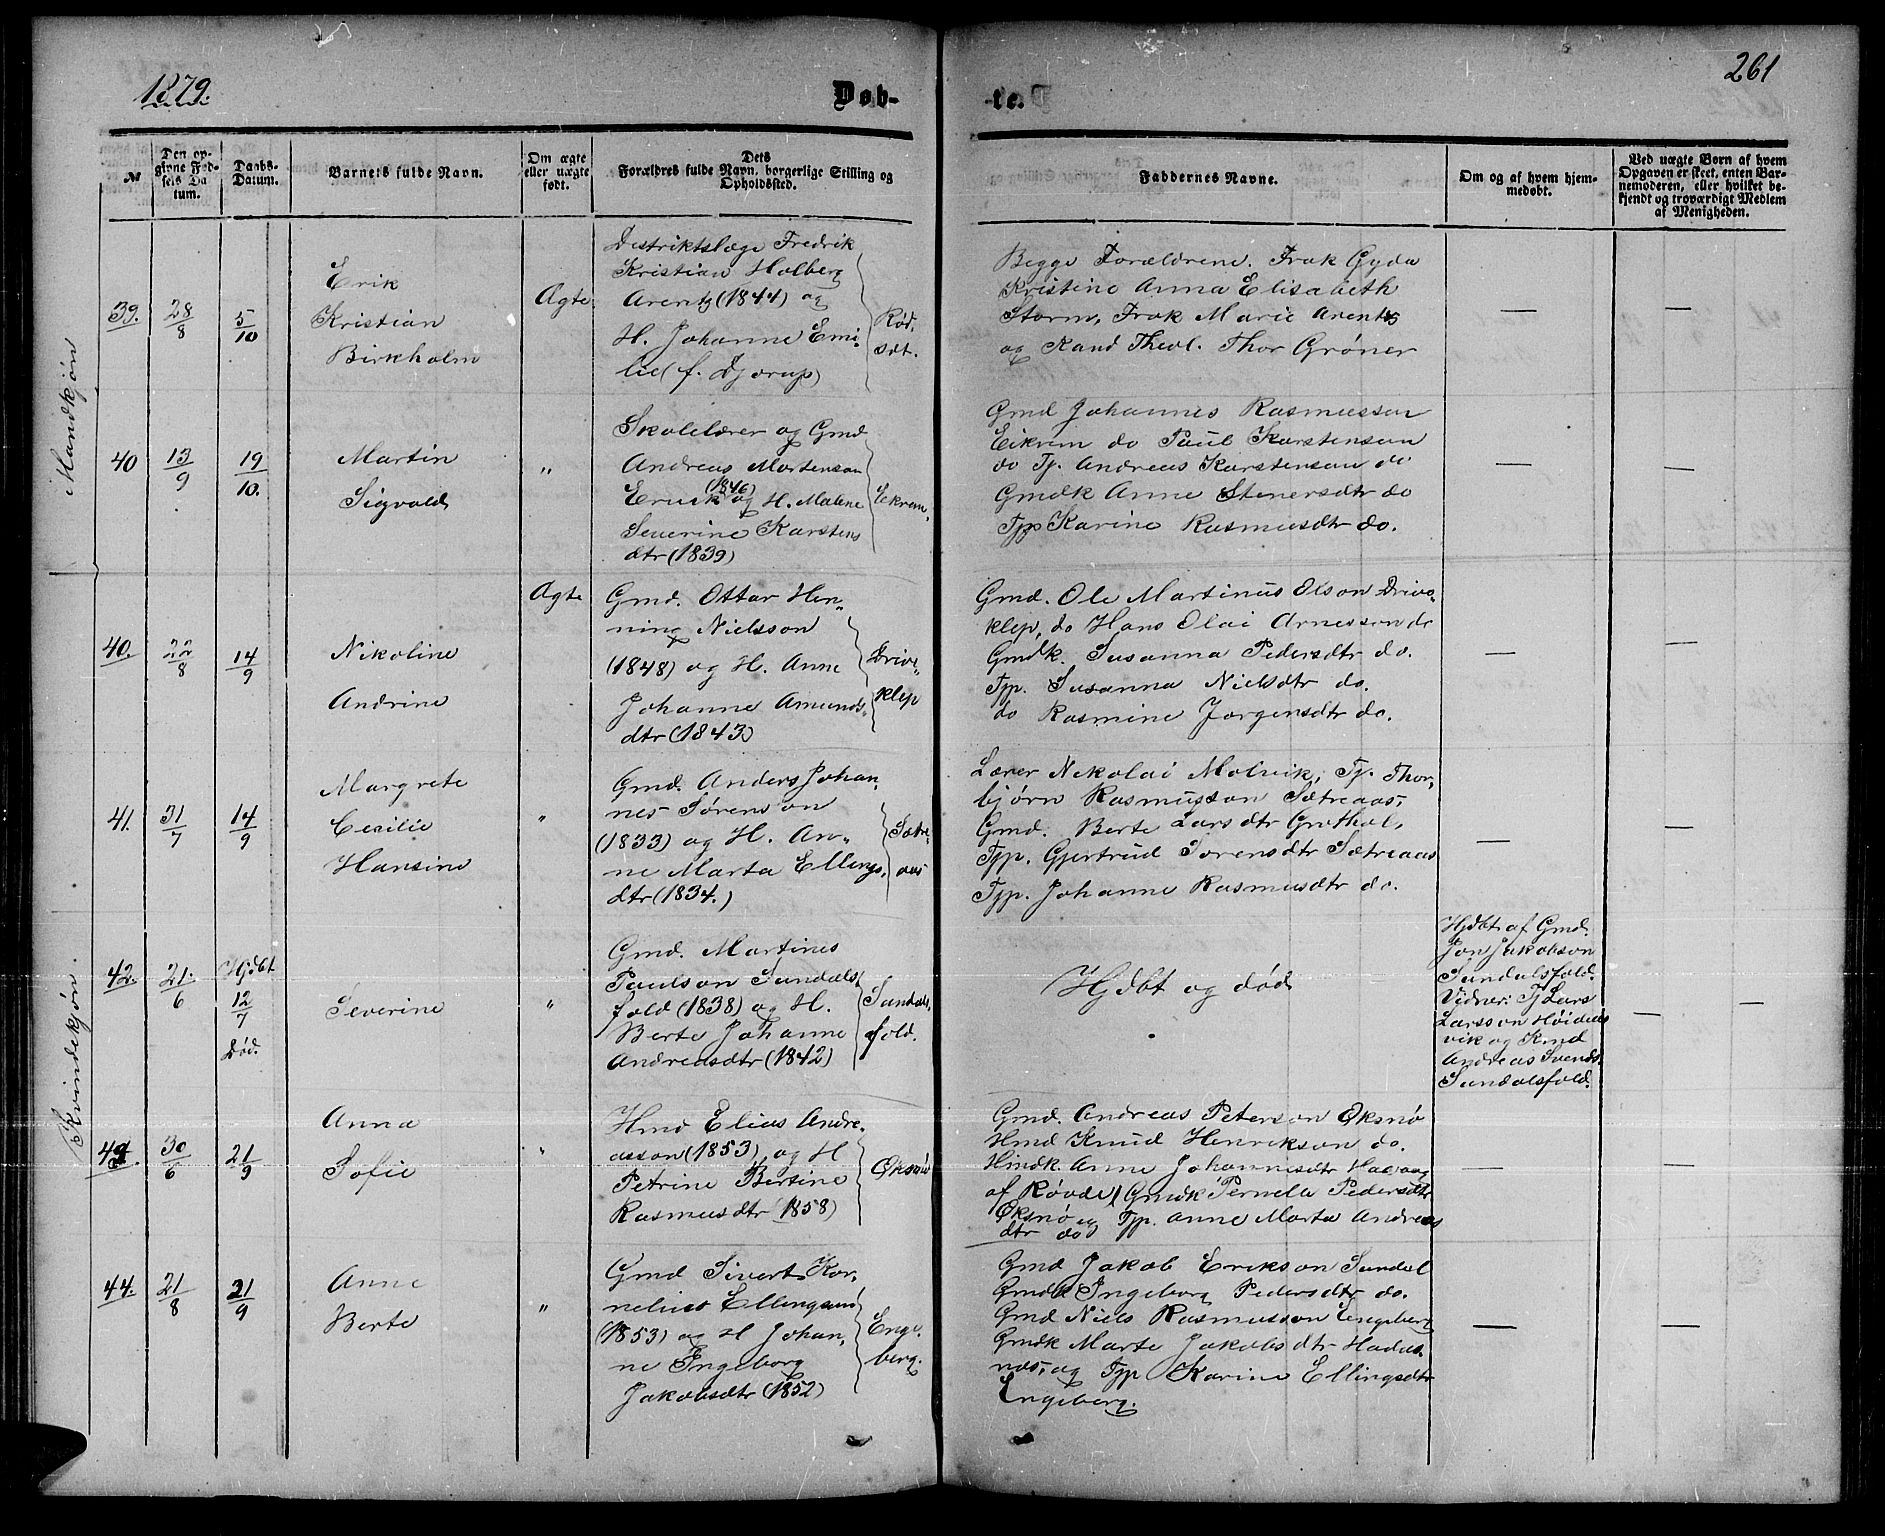 1879.
Døb-
te.
261
№
Den op-
givne Fød-
sels Da
tum.
Daabs-
Datum.
Barnets fulde Navn.
Om ægte
eller uægte
født.
Dets
Forældres fulde Navn, borgerlige Stilling og
Opholdssted.
Faddernes Navne.
Om og af hvem hjem-
medøbt.
Ved uægte Børn af hvem
Opgaven er skeet, enten Bar-
nemoderen, eller hvilket be-
kjendt og troværdigt Medlem
af Menigheden.
Mandkjøn
39.
28/8
5/10
Erik
Kristian
Birkholm
Ægte
Distriktslæge Fredrik
Kristian Holberg
Arentz (1844) og
H. Johanne Emi-
lie (f. Djørup)
Rød-
sæt.
Begge Forældrene. Frøk Gyda
Kristine Anna Elisabeth
Storm, Frøk Marie Arentz
og Kand Theol. Thor Grøner
—
—
40
13/9
19/10.
Martin
Sigvald
"
Skolelærer og Gmd
Andreas Mortenson
(1846)
og H. Malene
Severine Karstens
dtr (1839)
Eikrem.
Gmd Johannes Rasmusson
Eikrem do Paul Karstenson
do Tj. Andreas Karstenson do
Gmdk Anne Stenersdtr do
Tjp Karine Rasmusdtr do.
—
—
Kvindekjøn.
40.
22/8
14/9
Nikoline
Andrine
Ægte
Gmd. Ottar Hen-
ning Nielsson
(1848) og H. Anne
Johanne Amunds-
dtr (1843)
Drive-
klep
Gmd. Ole Martinus Olson Drive-
klep, do Hans Olai Arnesson do
Gmdk. Susanna Pedersdtr do.
Tjp. Susanna Nielsdtr do.
do Rasmine Jørgensdtr do.
—
—
41.
31/7
14/9
Margrete
Cecilie
Hansine
"
Gmd. Anders Johan
nes Sørenson
(1833) og H. An-
ne Marta Ellings-
dtr (1834.)
Sætre-
aas
Lærer Nikolai Molvik, Tj. Thor-
bjørn Rasmusson Sætreaas,
Gmd. Berte Larsdtr Grøthol,
Tjp. Gjertrud Sørensdtr Sætreaas
Tjp. Johanne Rasmusdtr do.
—
—
42.
21./6
Hjdbt
12/7
Død.
Severine
"
Gmd. Martines
Paulson Sundals
fold (1838) og H.
Berte Johanne
Andreasdtr (1842)
Sundals-
fold.
Hjdbt og død
Hjdbt af Gmd.
Jon Jakobson
Sundalsfold.
Vidner: Tj Lars
Larsson Høideds
vik og Knd
Andreas Svends.
Sundalsfold.
—
—
43.
30/6
21/9
Anna
Sofie
"
Hmd Elias Andre-
asson (1853) og H
Petrine Bertine
Rasmusdtr 1858)
Øksnø
Gmd. Andreas Peterson Øksnø
Hmd Knud Henrikson do.
Hmdk. Anne Johannesdtr
af Røvde, Gmdk Pernela Pedersdtr
Øksnø og Tjp. Anne Marta Andreas
dtr do
—
—
44.
21/8
21/9
Anne
Berte
"
Gmd Sivert Kor-
nelius Ellingsen
(1853) og H Johan-
ne Ingeborg
Jakobsdtr (1852)
Enge-
berg.
Gmd Jakob Erikson Sundal
Gmdk Ingeborg Pedersdtr do.
Gmd Niels Rasmusson Engeberg
Gmdk Marte Jakobsdtr Hadds-
næs, og Tjp Karine Ellingsdtr
Engeberg.
—
—